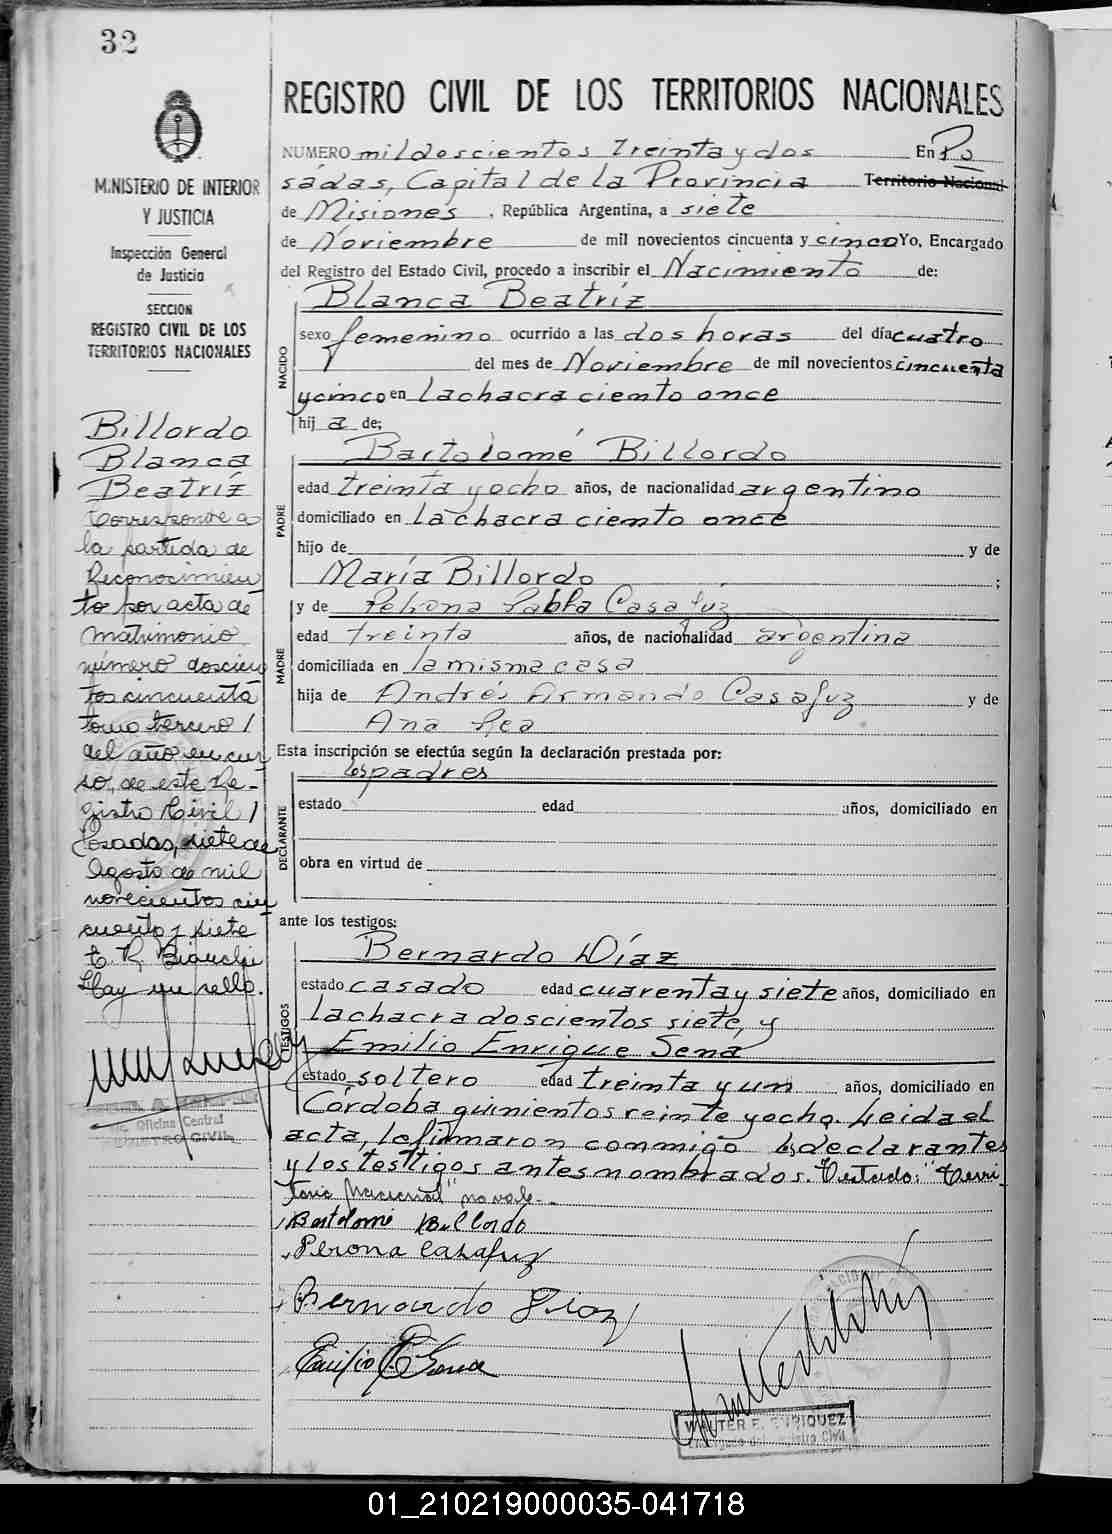 32
REGISTRO CIVIL DE LOS TERRITORIOS NACIONALES
MINISTERIO DE INTERIOR
Y JUSTICIA
Inspección General
de Justicia
SECCION
REGISTRO CIVIL DE LOS
TERRITORIOS NACIONALES
Billordo
Blanca
Beatríz
Corresponde a
la partida de
Reconocimien
to por acta de
matrimonio
número doscien
tos cincuenta
tomo tercero /
del año en cur
so, de este Re-
gistro Civil /
Posadas, siete de
Agosto de mil
novecientos cin
cuenta y siete
E. R. Bianchi
Hay un sello.
Oficina Central
REGISTRO CIVIL
NUMERO mil doscientos treinta y dos En Po
sadas, Capital de la Provincia Territorio Nacional
de Misiones , República Argentina, a siete
de Noviembre de mil novecientos cincuenta y cinco Yo, Encargado
del Registro del Estado Civil, procedo a inscribir el Nacimiento de:
Blanca Beatríz
NACIDO
sexo femenino ocurrido a las dos horas del día cuatro
del mes de Noviembre de mil novecientos cincuenta
y cinco en la chacra ciento once
hij a de;
Bartolomé Billordo
PADRE
edad treinta y ocho años, de nacionalidad argentino
domiciliado en la chacra ciento once
hijo de y de
María Billordo ;
MADRE
y de Casafúz
edad treinta años, de nacionalidad argentina
domiciliada en la misma casa
hija de Andrés Armando Casafuz y de
Ana Rea
Esta inscripción se efectúa según la declaración prestada por:
los padres
DECLARANTE
estado edad años, domiciliado en
obra en virtud de
ante los testigos:
Bernardo Díaz
TESTIGOS
estado casado edad cuarenta y siete años, domiciliado en
la chacra doscientos siete, y
Emilio Enrique Sena
estado soltero edad treinta y un años, domiciliado en
Córdoba quinientos veinte y ocho. Leida el
acta, la firmaron conmigo los declarantes
y los testigos antes nombrados. Testado: "Terri-
torio Nacional" no vale.-
Bartolomé Billordo
Perona Casafuz
Bernardo Diaz
Emilio E Sena
WALTER E. ENRIQUEZ
Encargado del Registro Civil
01_210219000035-041718